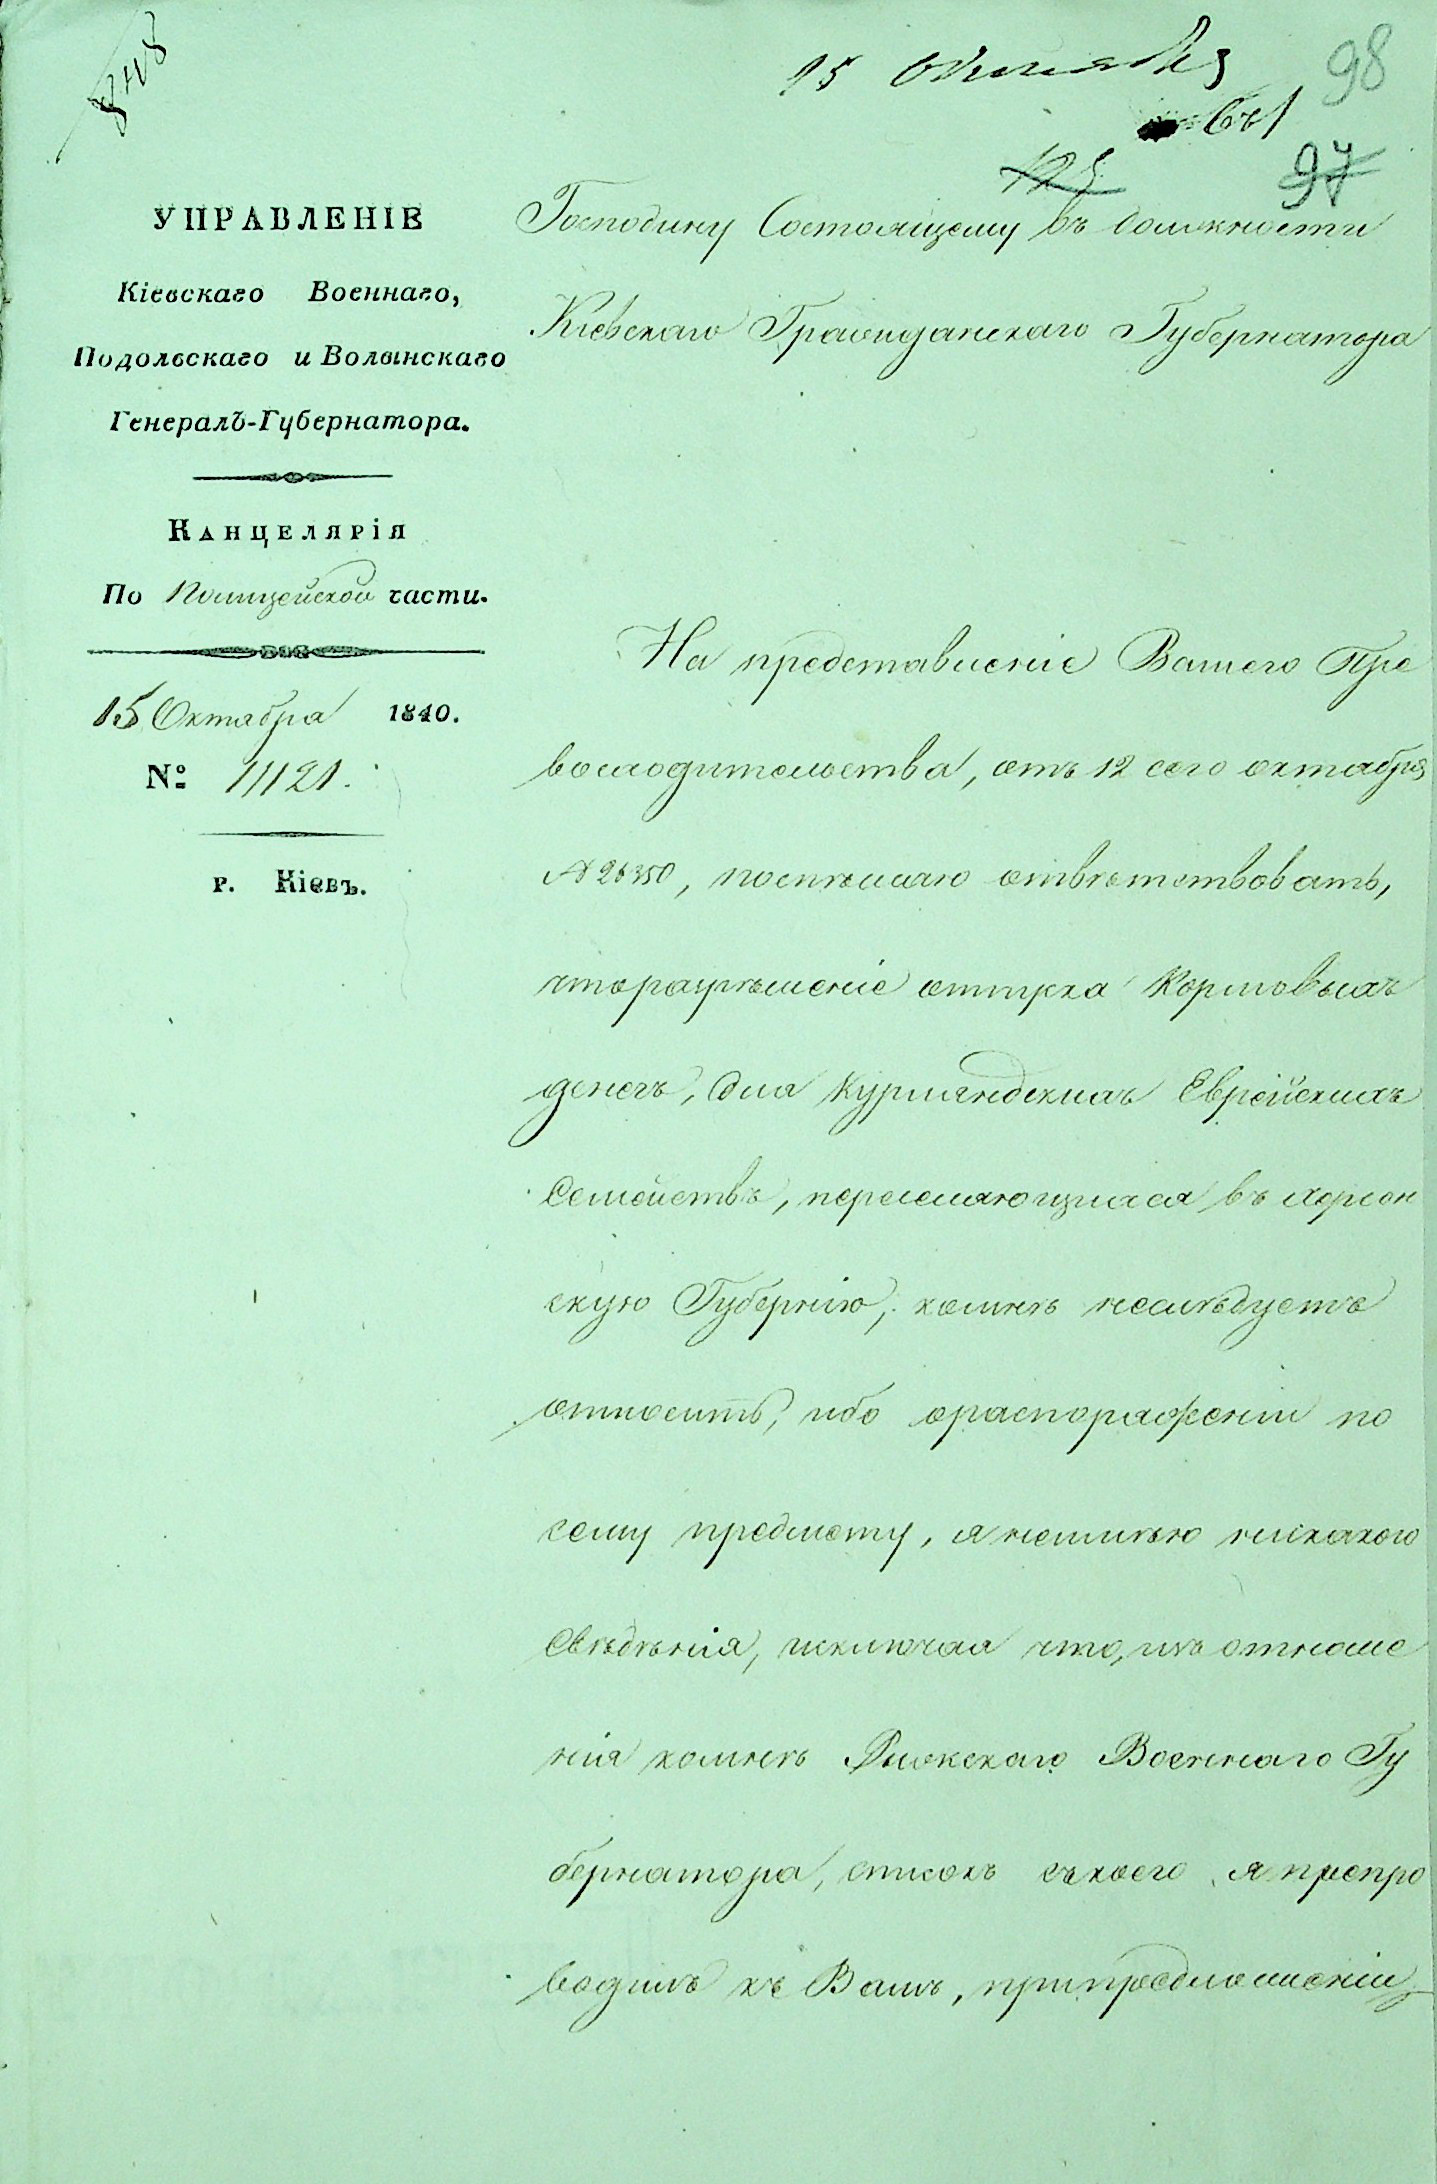 8418
15 Октября
98
125
97
УПРАВЛЕНІЕ
Кіевскаго Военнаго,
Подольскаго и Волынскаго
Генералъ-Губернатора.
Канцелярія
По Полицейской части.
15 Октября 1840.
№ 11121.
г. Кіевъ.
Господину Состоящему въ должности
Кіевскаго Гражданскаго Губернатора
На представленіе Вашего Пре
восходительства, отъ 12 сего октября
№ 26350, поспѣшаю отвѣтствовать,
что разрѣшеніе отпуска Кормовыхъ
денегъ, для Курляндскихъ Еврейскихъ
Семействъ, переселяющихся въ Херсон
скую Губернію, ко мнѣ не слѣдуетъ
относить, ибо о распоряженіи по
сему предмету, я не имѣю никакого
свѣдѣнія, исключая что, изъ отноше
нія ко мнѣ Рижскаго Военнаго Гу
бернатора, списокъ съ коего я препро
водилъ къ Вамъ, при предложеніи